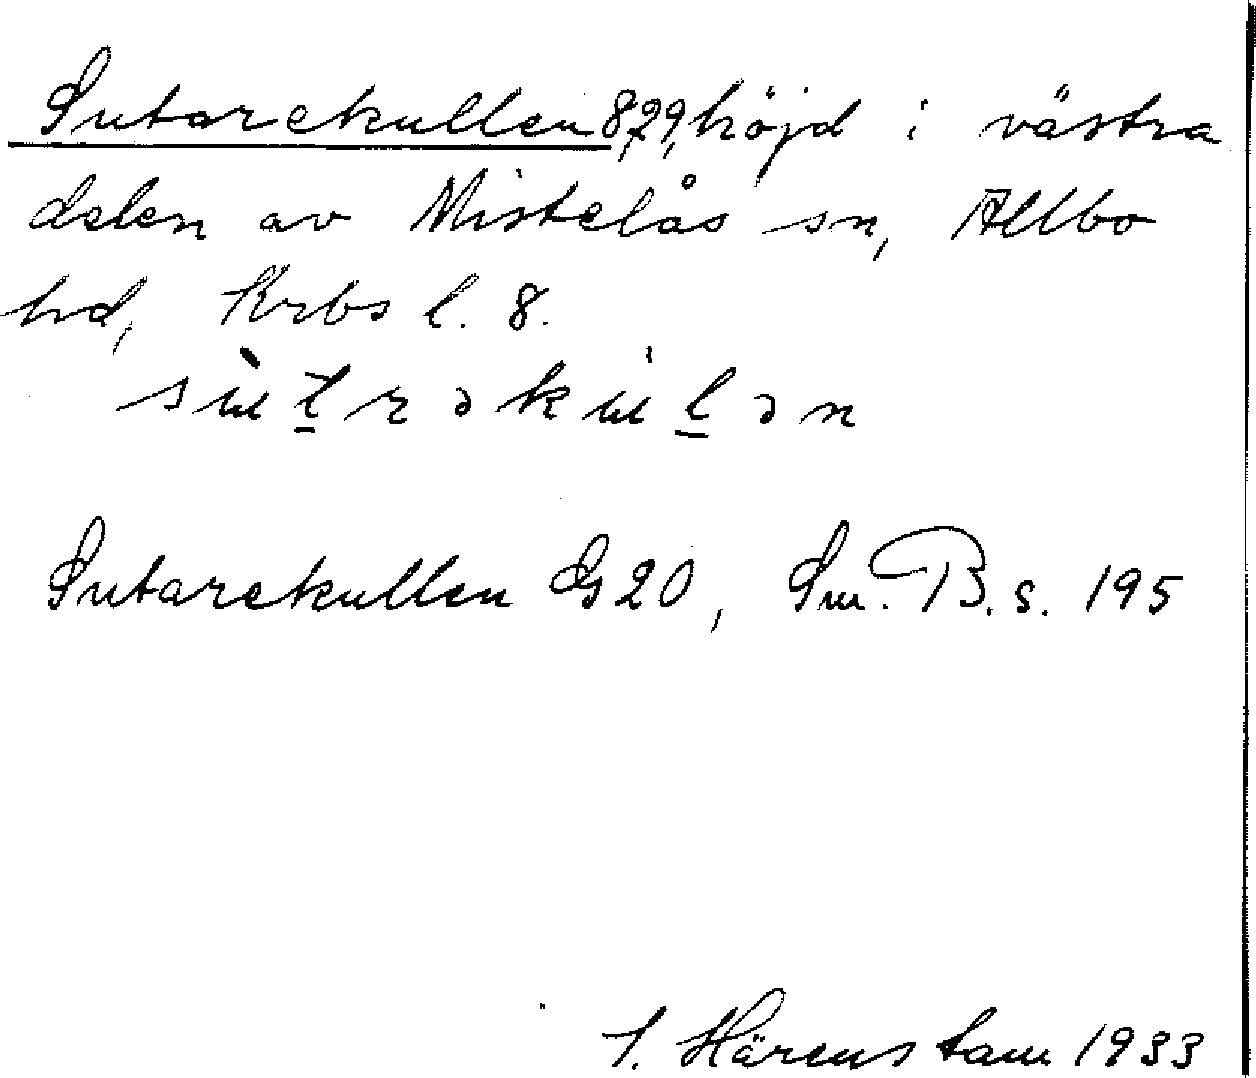 Sutarekullen 8,29, höjd i västra
delen av Mistelås sn, Allbo
hd, Krbs l. 8.
Sutarekullen G 20, Sm. B. s. 195
Härenstam 1933